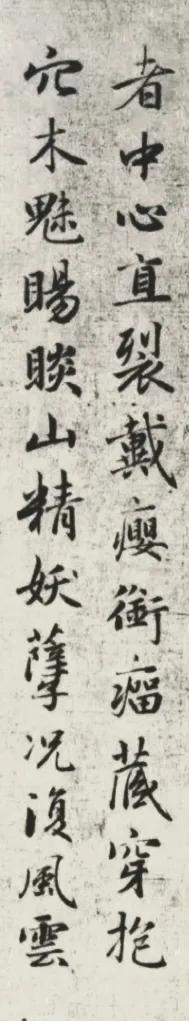 者中心直裂戴癭銜瘤藏穿抱
穴木魅睗睒山精妖孽況復風雲